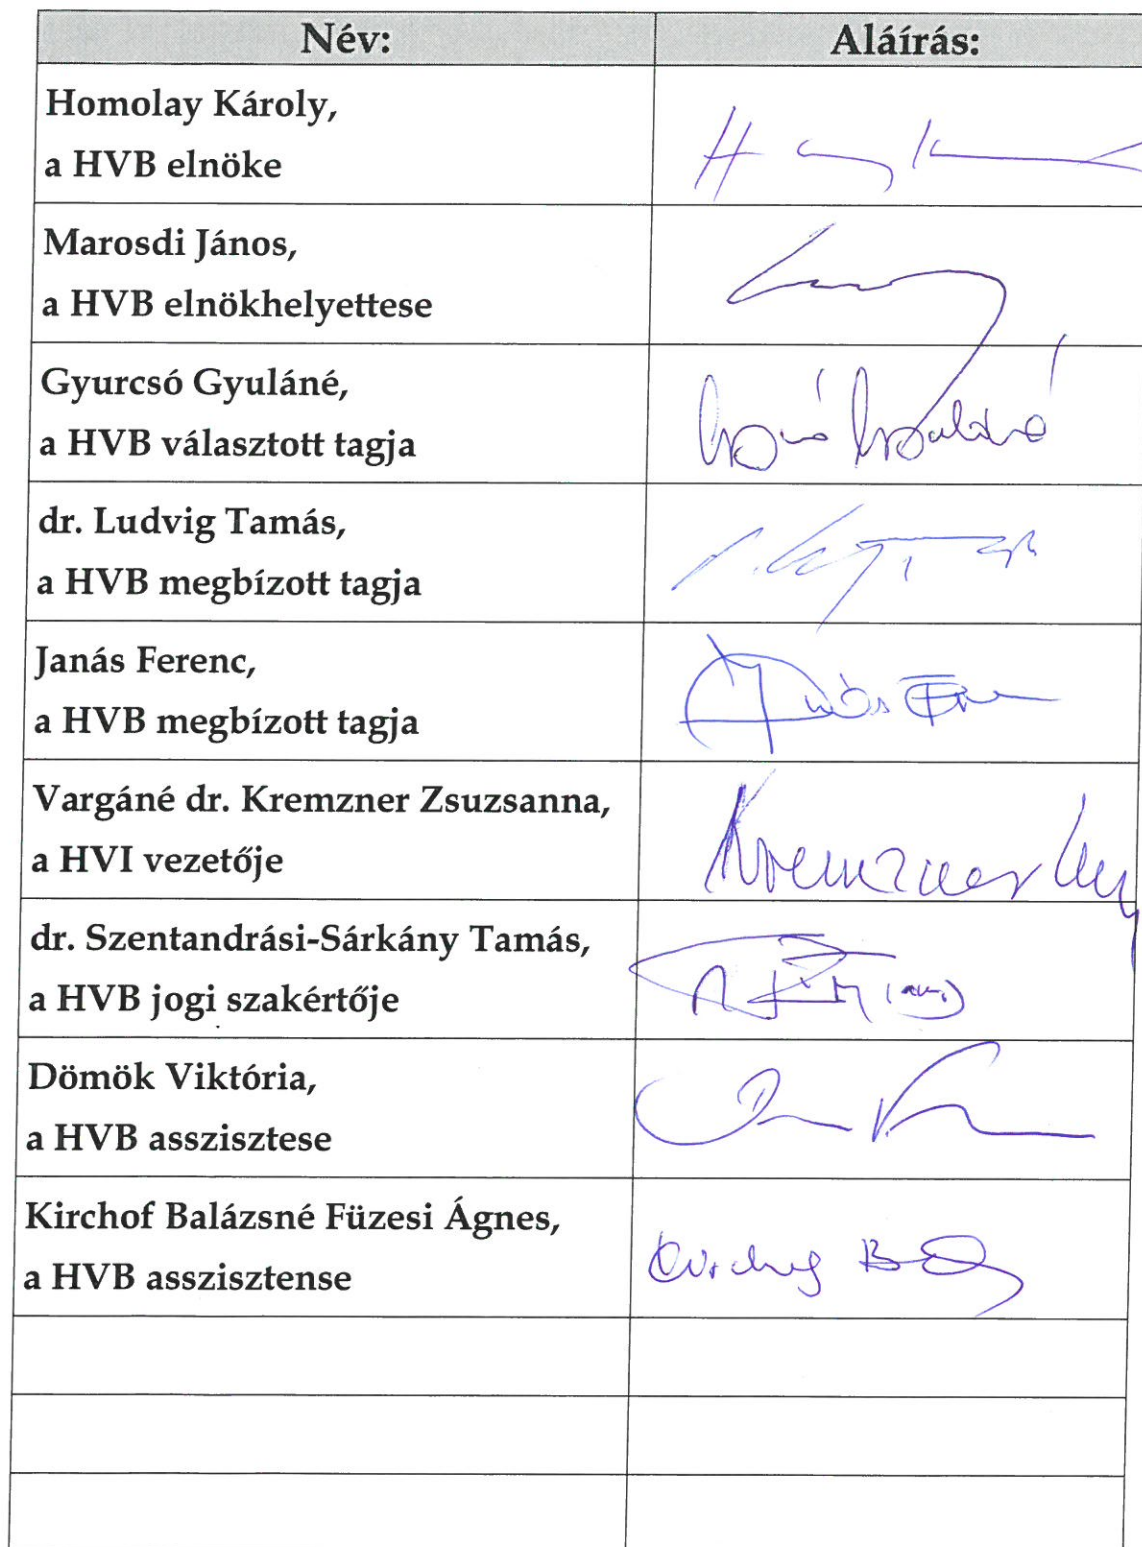 Név: Aláírás:
Homolay Károly,
a HVB elnöke
Marosdi János,
a HVB elnökhelyettese
Gyurcsó Gyuláné,
a HVB választott tagja
dr. Ludvig Tamás,
a HVB megbízott tagja
Janás Ferenc,
a HVB megbízott tagja
Vargáné dr. Kremzner Zsuzsanna,
a HVI vezetője
Kremzner
dr. Szentandrási-Sárkány Tamás,
a HVB jogi szakértője
Dömök Viktória,
a HVB asszisztese
Kirchof Balázsné Füzesi Ágnes,
a HVB asszisztense